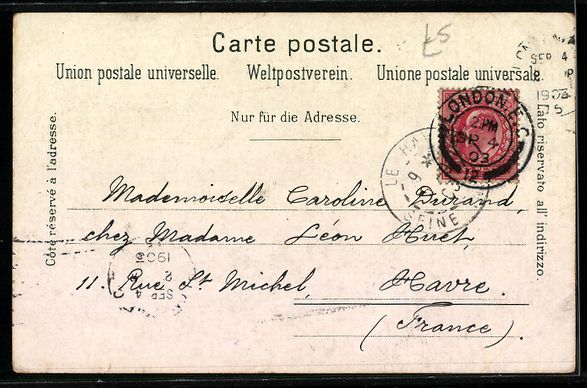 £5
Carte postale.
Union postale universelle. Weltpostverein. Unione postale universale.
Nur für die Adresse.
Côté réservé à l'adresse.
Lato riservato all' indirizzo.
LONDON. E.C.
2 PM
SP 4
03
SEP 4
1903
Mademoiselle Caroline Durand,
chez Madame Léon Huet,
11. Rue St Michel, Havre.
(France)
SEP 4
1903